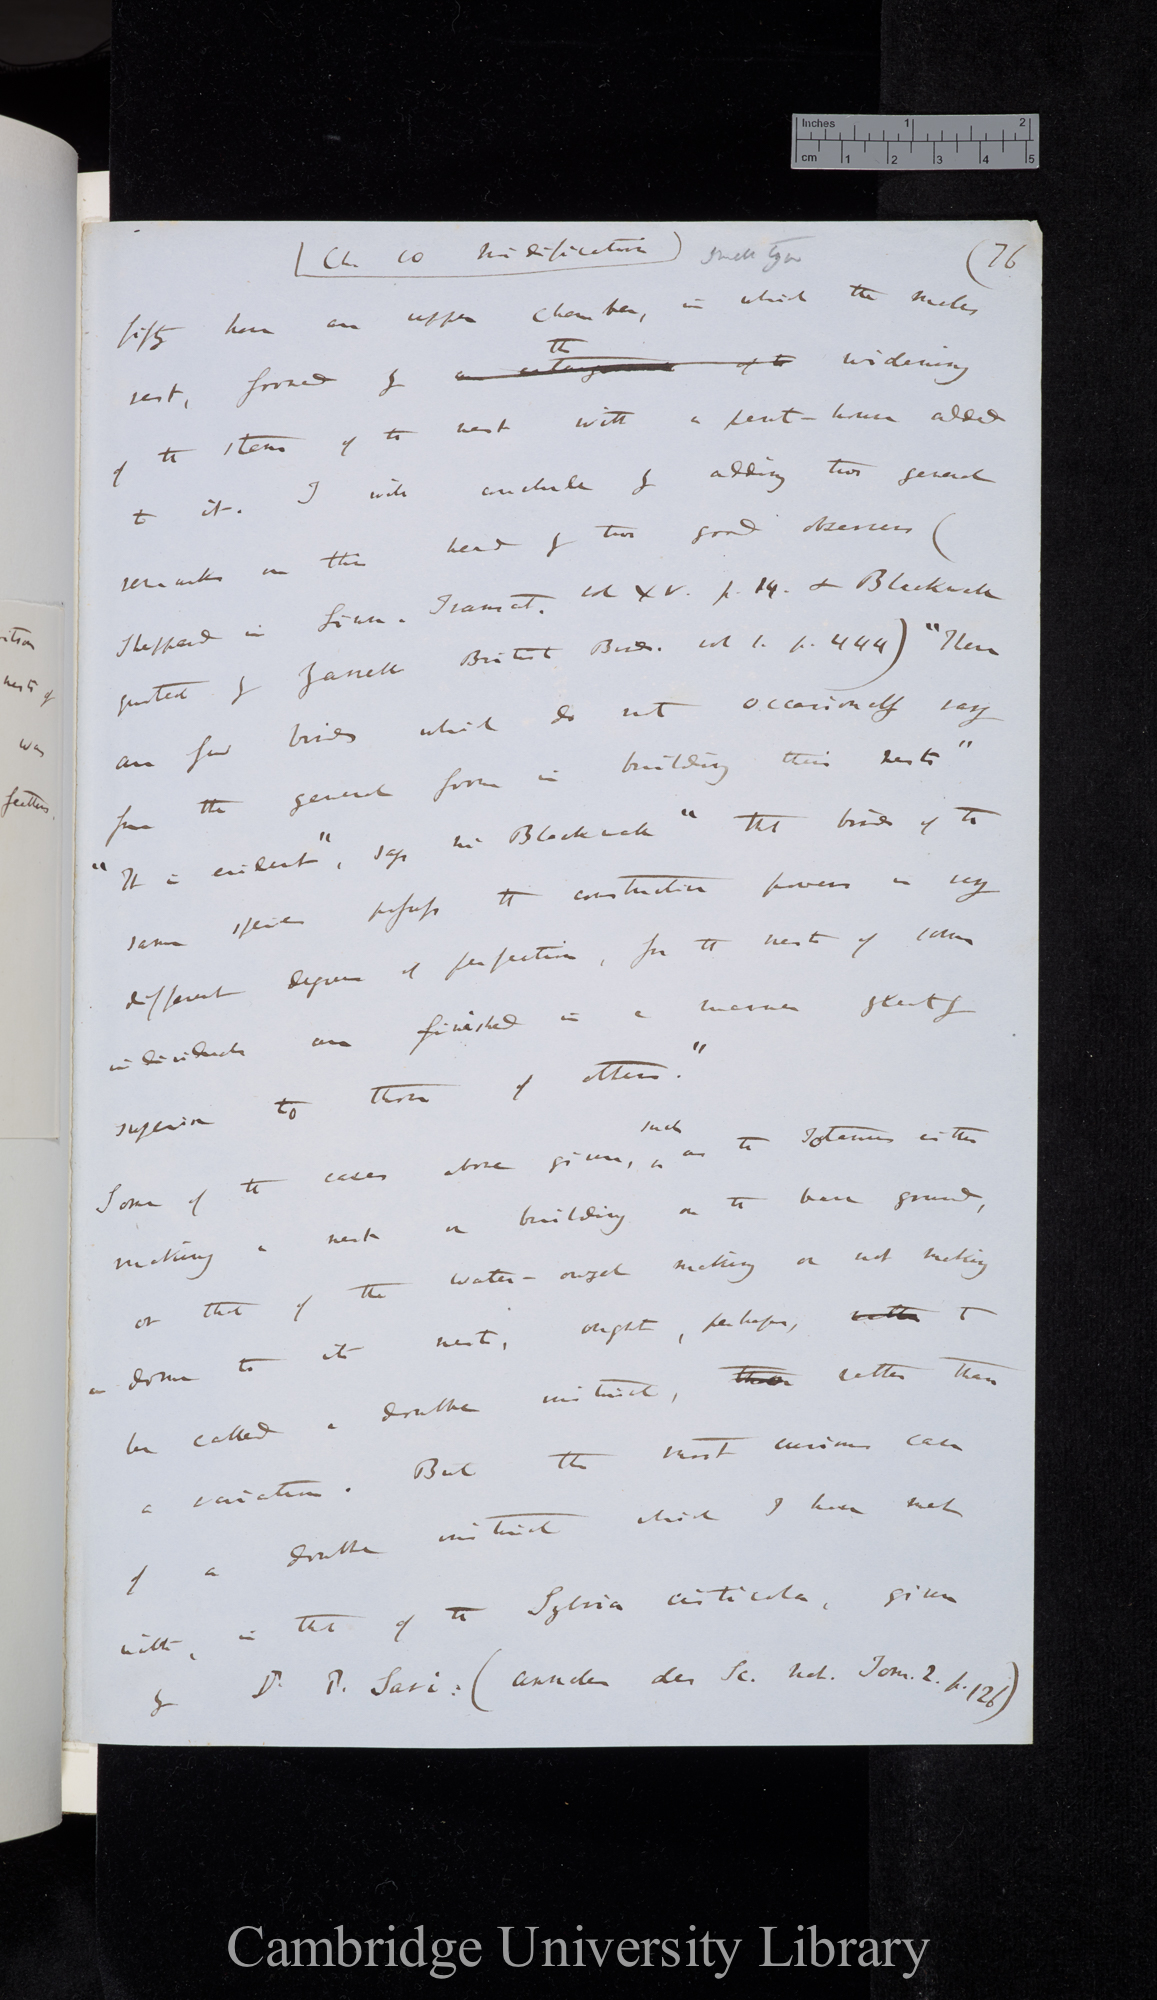 Inches 1 2
cm 1 2 3 4 5
(Ch. 10 Nidification) small type (76
fifty have an upper chamber, in which the males
the
rest, formed by an enlargement of the widening
of the stem of the nest with a pent-house added
to it. I will conclude by adding two general
remarks on this head by two good observers (
Sheppard in Linn. Transact. vol XV. p. 14. & Blackwall
quoted by Yarrell British Birds. vol 1. p. 444) "There
are few birds which do not occasionally vary
from the general form in building their nests"
"It is evident", says Mr Blackwall "that birds of the
same species possess the constructive powers in very
different degrees of perfection, for the nests of some
individuals are finished in a manner greatly
superior to those of others."
such
Some of the cases above given, as the Totanus either
making a nest or building on the bare ground,
or that of the water-ouzel making or not making
a dome to its nest, ought, perhaps, rather to
be called a double instinct, than rather than
a variation. But the most curious case
of a double instinct which I have met
with, is that of the Sylvia cisticola, given
by Dr. P. Savi: (Annales des Sc. Nat. Tom. 2. p. 126)
nests of
was
feathers.
Cambridge University Library